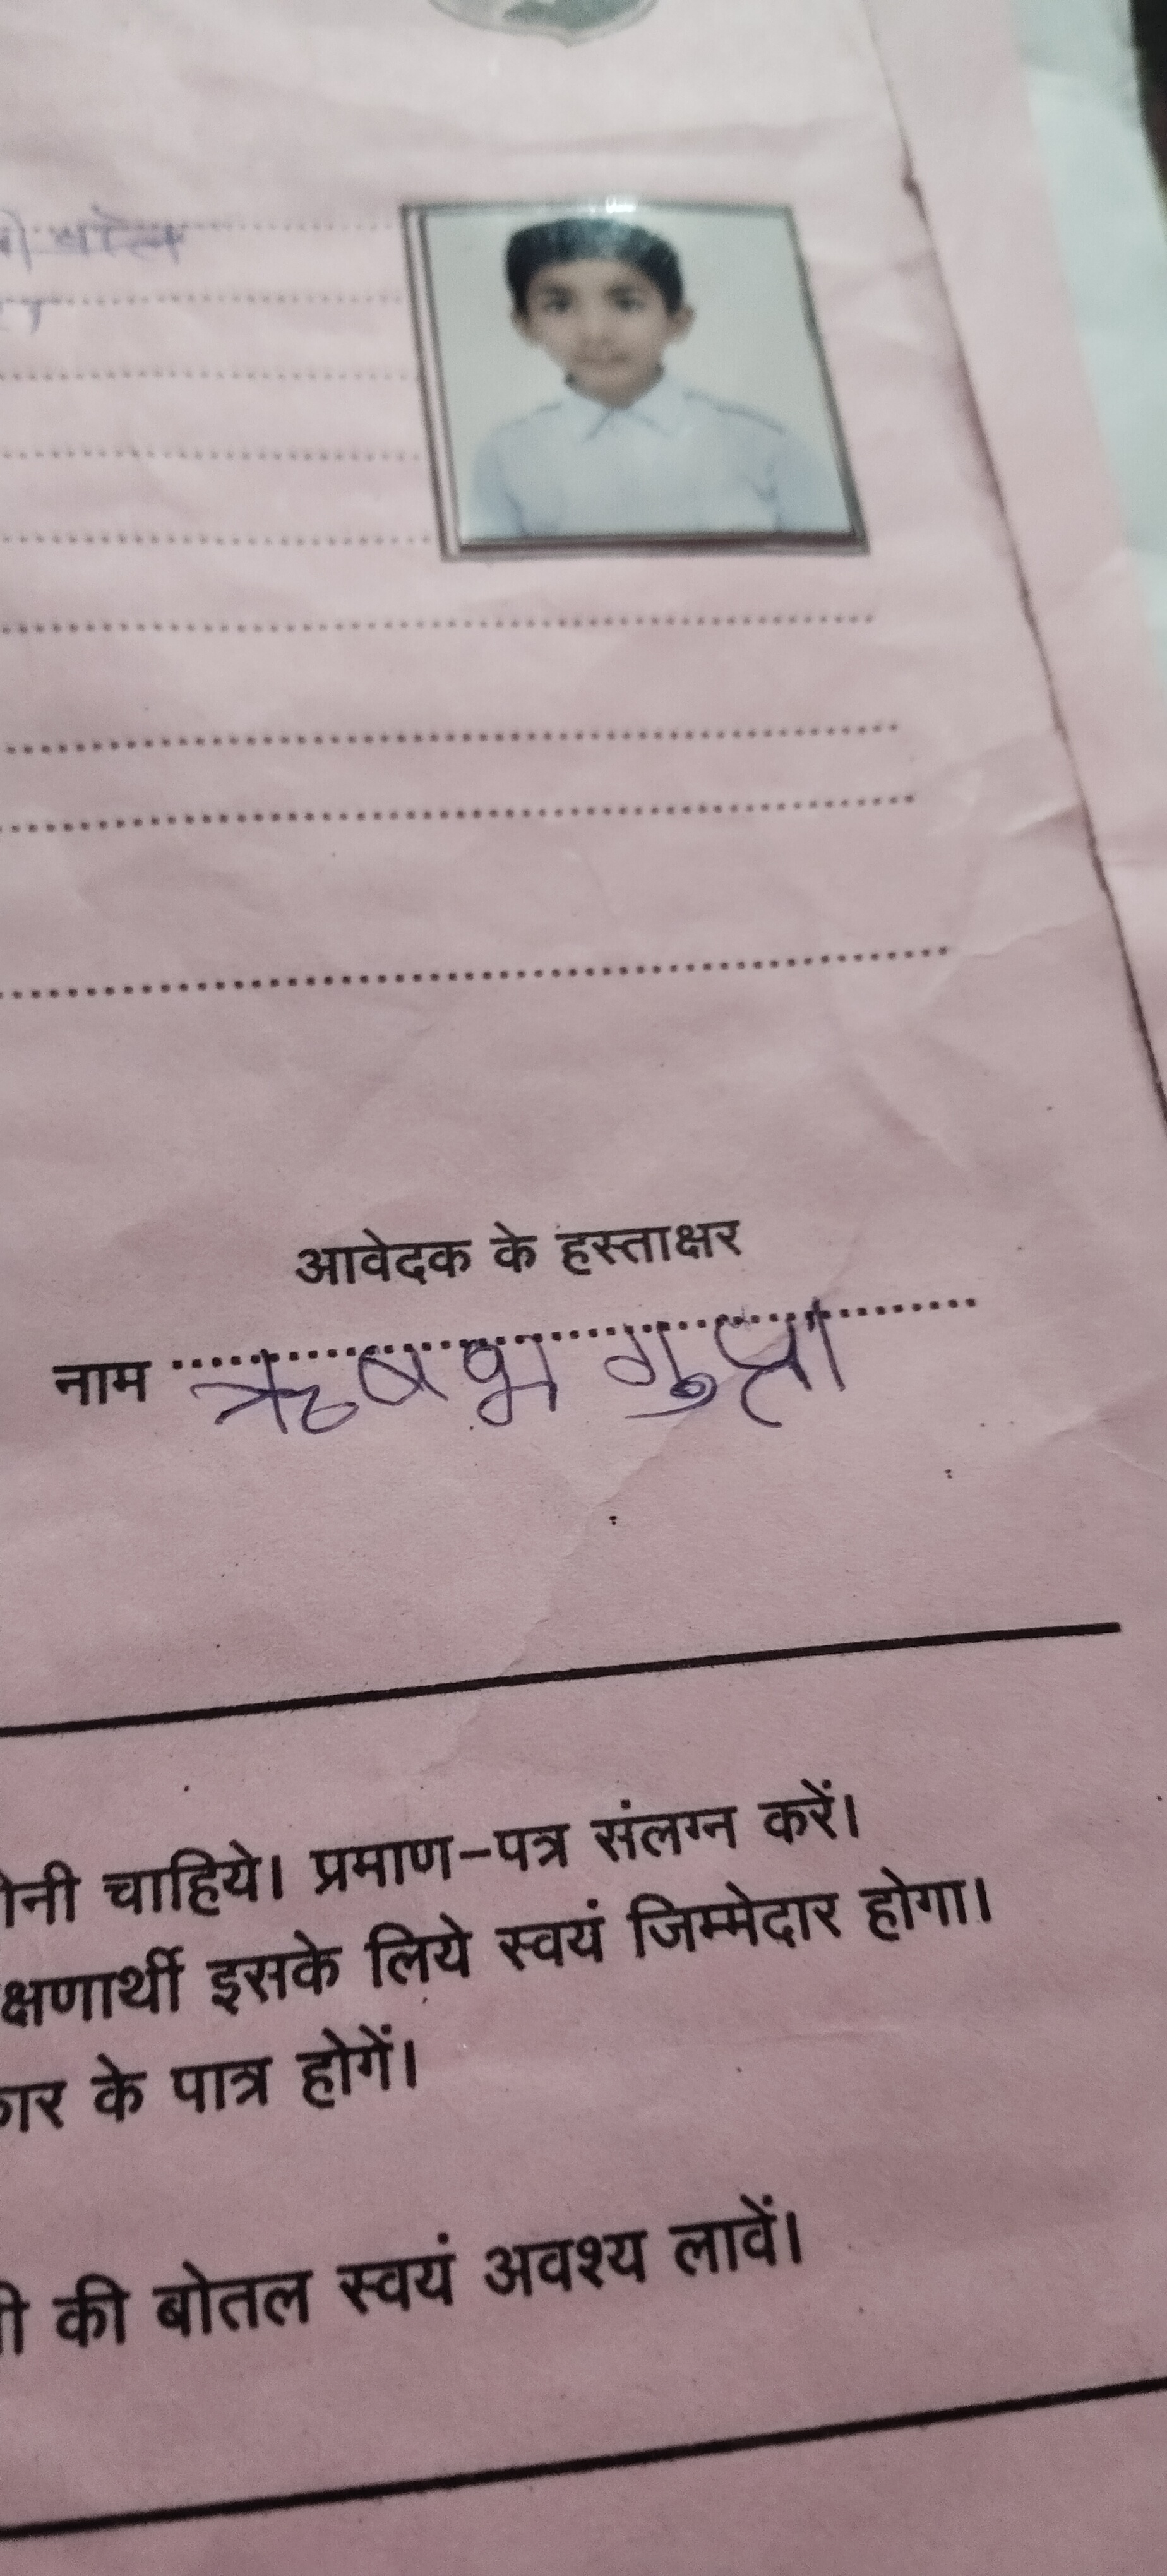 आवेदक के हस्ताक्षर
नाम ऋषभ गुप्ता
चाहिये। प्रमाण-पत्र संलग्न करें।
इसके लिये स्वयं जिम्मेदार होगा।
के पात्र होगें।
की बोतल स्वयं अवश्य लावें।